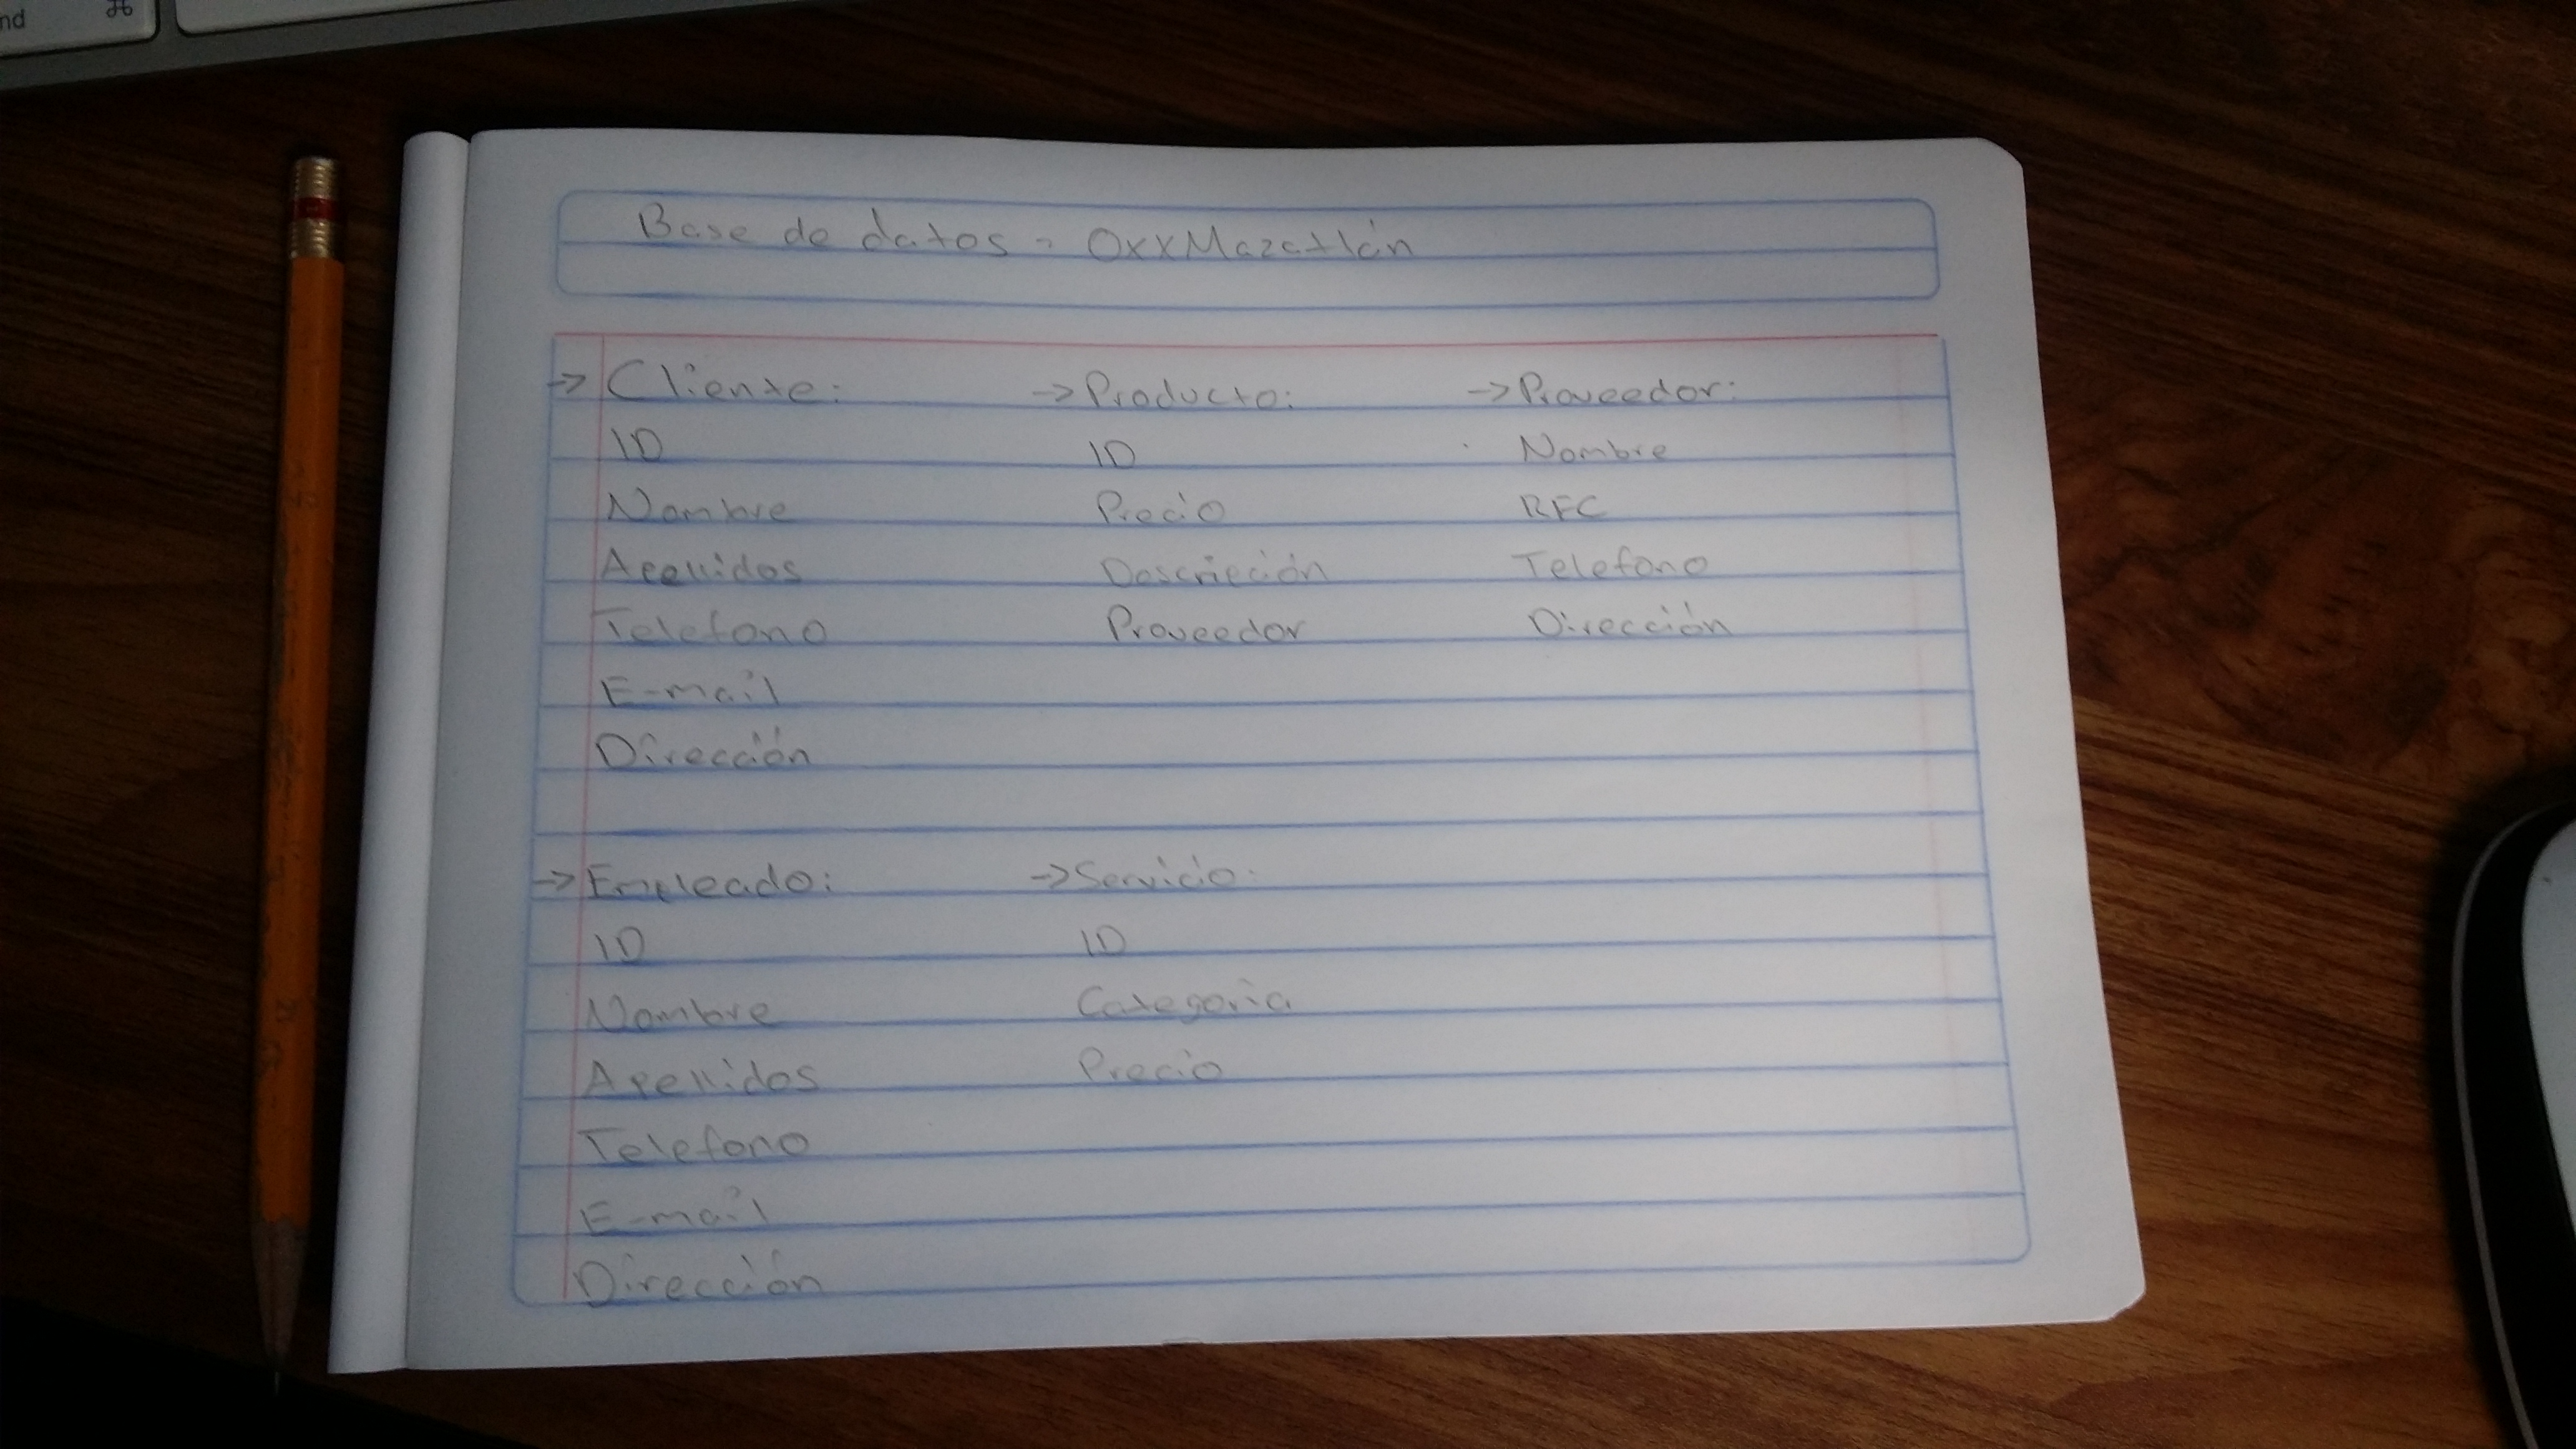 nd ⌘
Base de datos - OxxMazatlán
→ Cliente:
ID
Nombre
Apellidos
Telefono
E-mail
Dirección
→ Producto:
ID
Precio
Descripción
Proveedor
→ Proveedor:
Nombre
RFC
Telefono
Dirección
→ Empleado:
ID
Nombre
Apellidos
Telefono
E-mail
Dirección
→ Servicio:
ID
Categoria
Precio